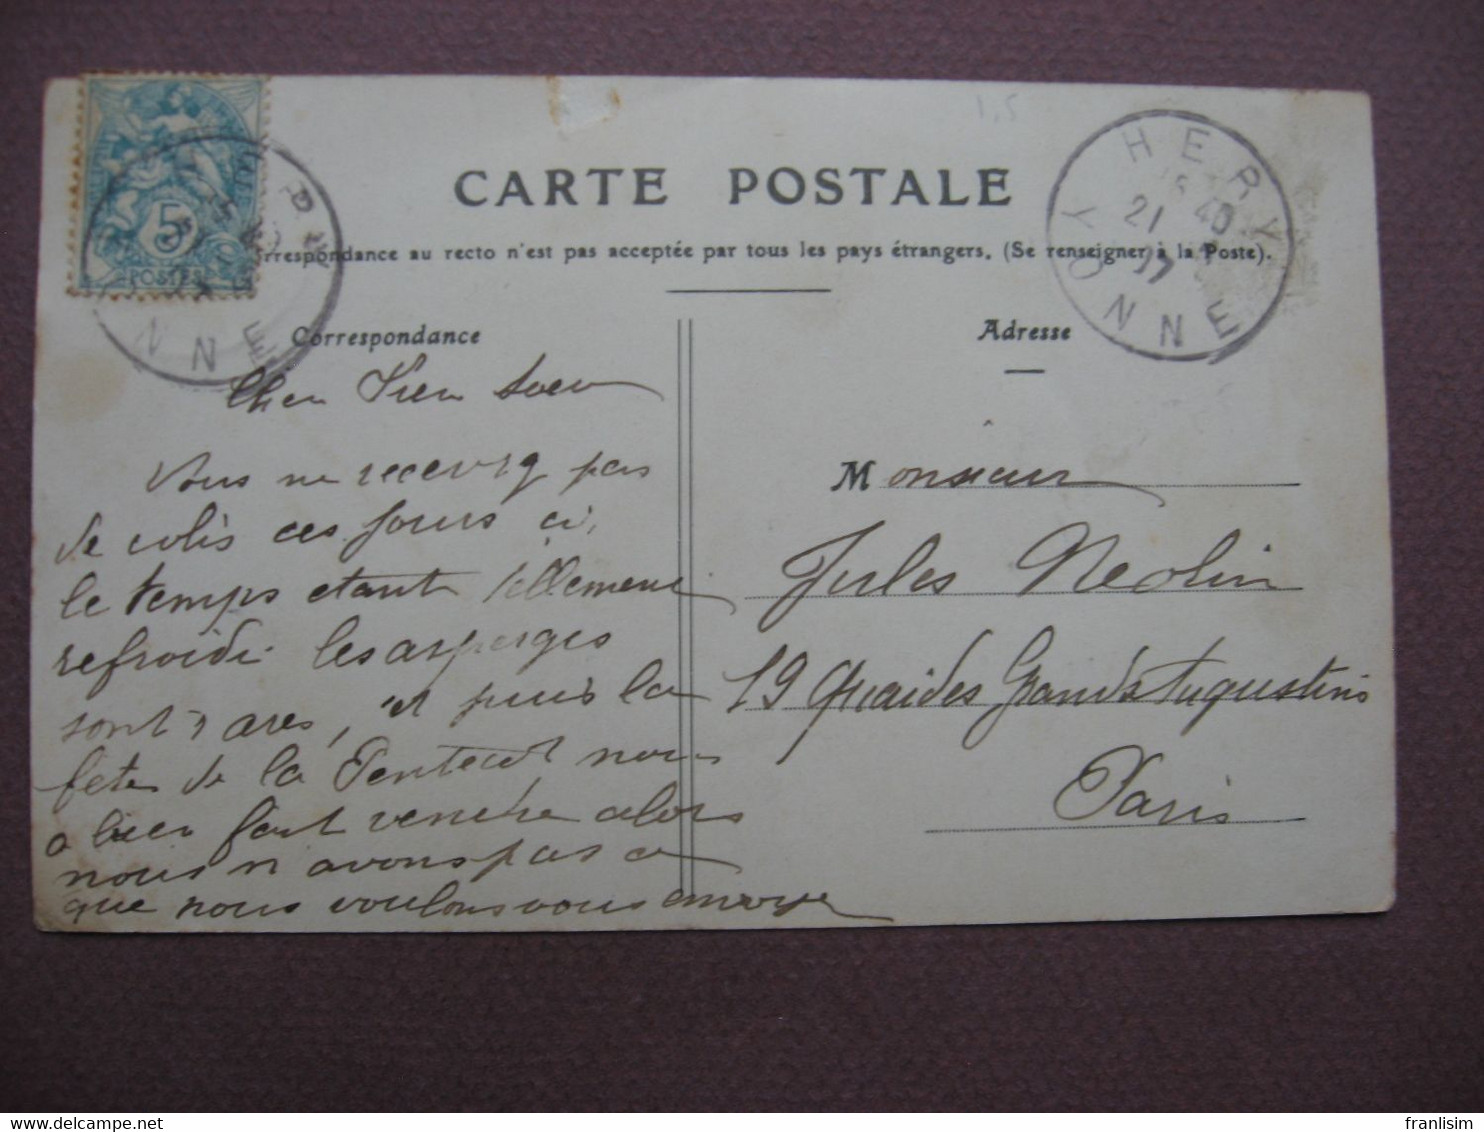 1,5
CARTE POSTALE
rrespondance au recto n'est pas acceptée par tous les pays étrangers. (Se renseigner à la Poste).
HERY
21
40
YONNE
5
POSTES
RY
NNE
Correspondance
Vous ne recevrez pas
de colis ces jours ci,
le temps etant tellement
refroidi les asperges
sont rares, et puis la
fête de la Pentecot nous
a bien fait vendre alors
nous n'avons pas ce
que nous voulons vous envoyer
Adresse
Monsieur
Jules Neolin
19 Quai des Grands Augustins
Paris
franlisim